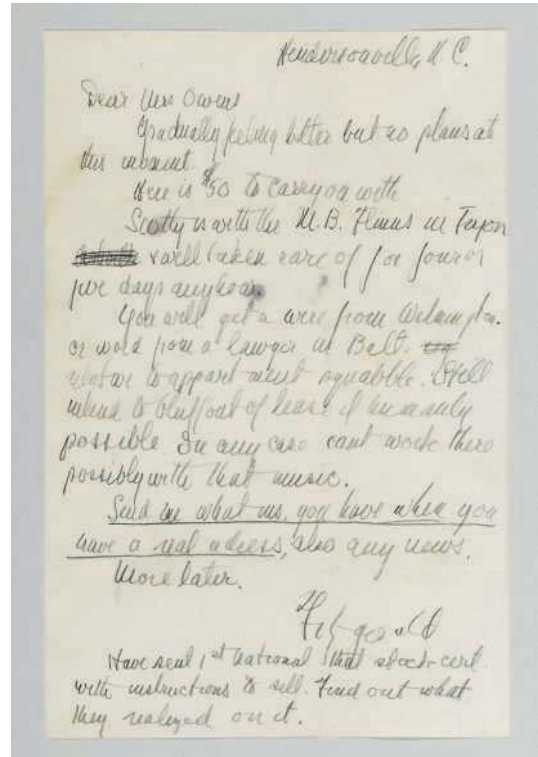 Hendersonville, N C.
Dear Mrs Owens
Gradually feeling better but no plans at
this moment.
Here is $50 to carry on with
Scotty is with the M.B. Flinns in Tryon
& well taken care of for four or
five days anyhow.
You will get a wire from
or word from a lawyer in Balt.
relative to appartment squabble. Still
intend to bluff out of lease if humanly
possible. In any case cant work there
possibly with that music.
Send me what ms. you have when you
have a real adress, also any news.
More later.
Fitzgerald
Have sent 1st National that stock cert
with instructions to sell. Find out what
they realized on it.